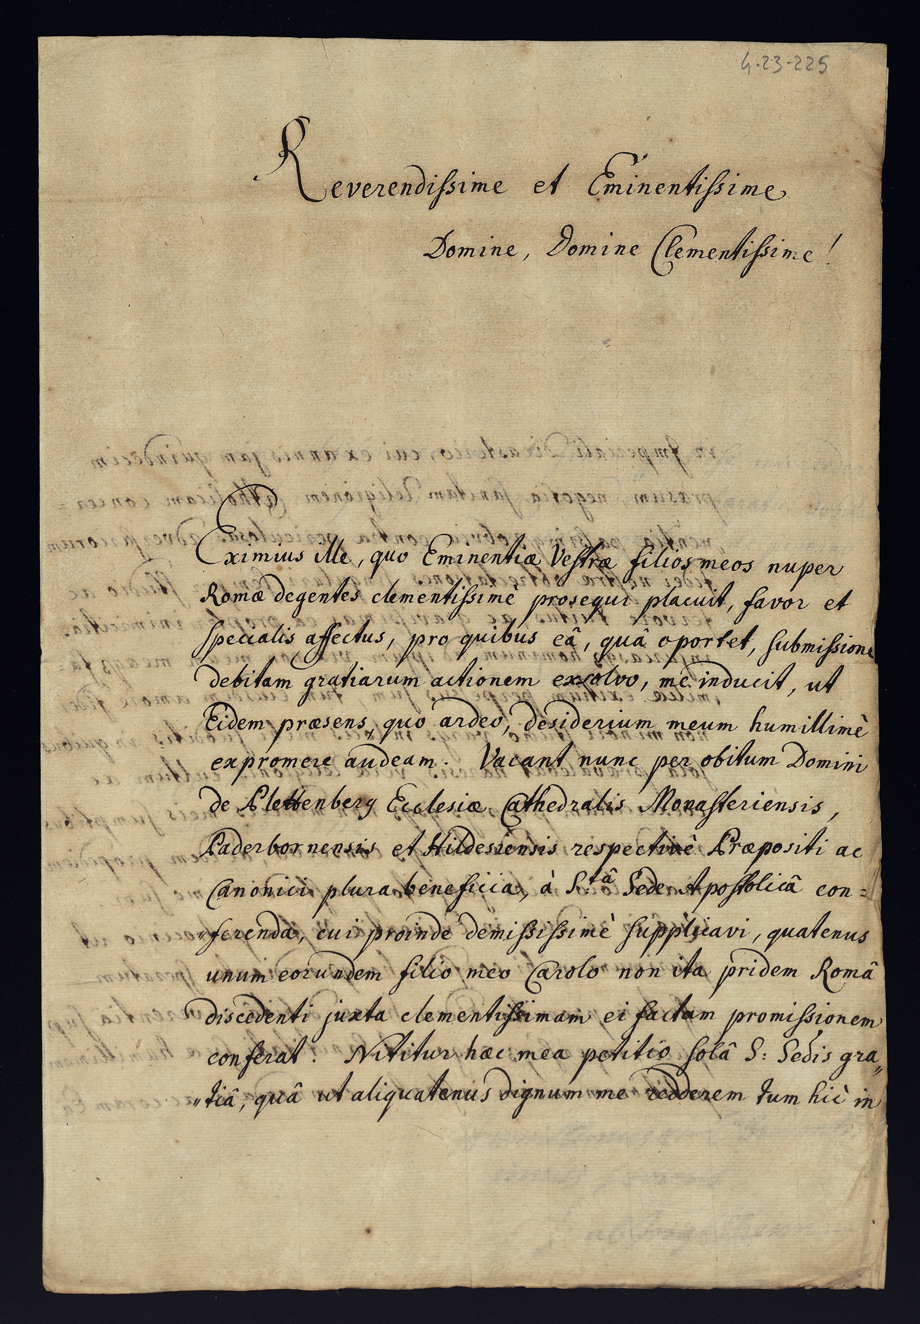 4.23-225
Reverendissime et Eminentissime
Domine, Domine Clementissime!
Eximius ille, quo Eminentiæ Vestræ filios meos nuper
Romæ degentes clementissimè prosequi placuit, favor et
specialis affectus, pro quibus eâ, quâ oportet, submissione
debitam gratiarum actionem exsolvo, me inducit, ut
Eidem præsens, quo ardeo, desiderium meum humillimè
expromere audeam. Vacant nunc per obitum Domini
de Plettenberg Ecclesiæ Cathedralis Monasteriensis,
Paderbornensis et Hildesiensis respectivè Præpositi ac
Canonici plura beneficia, à S.tâ Sede Apostolicâ con=
"ferenda, cui proindè demississimè supplicavi, quatenus
unum eorundem filio meo Carolo non ita pridem Româ
discedenti juxta clementissimam ei factam promissionem
conferat. Nititur hæc mea petitio solâ S: Sedis gra"
"tiâ, quâ ut aliquatenus dignum me redderem tum hîc in